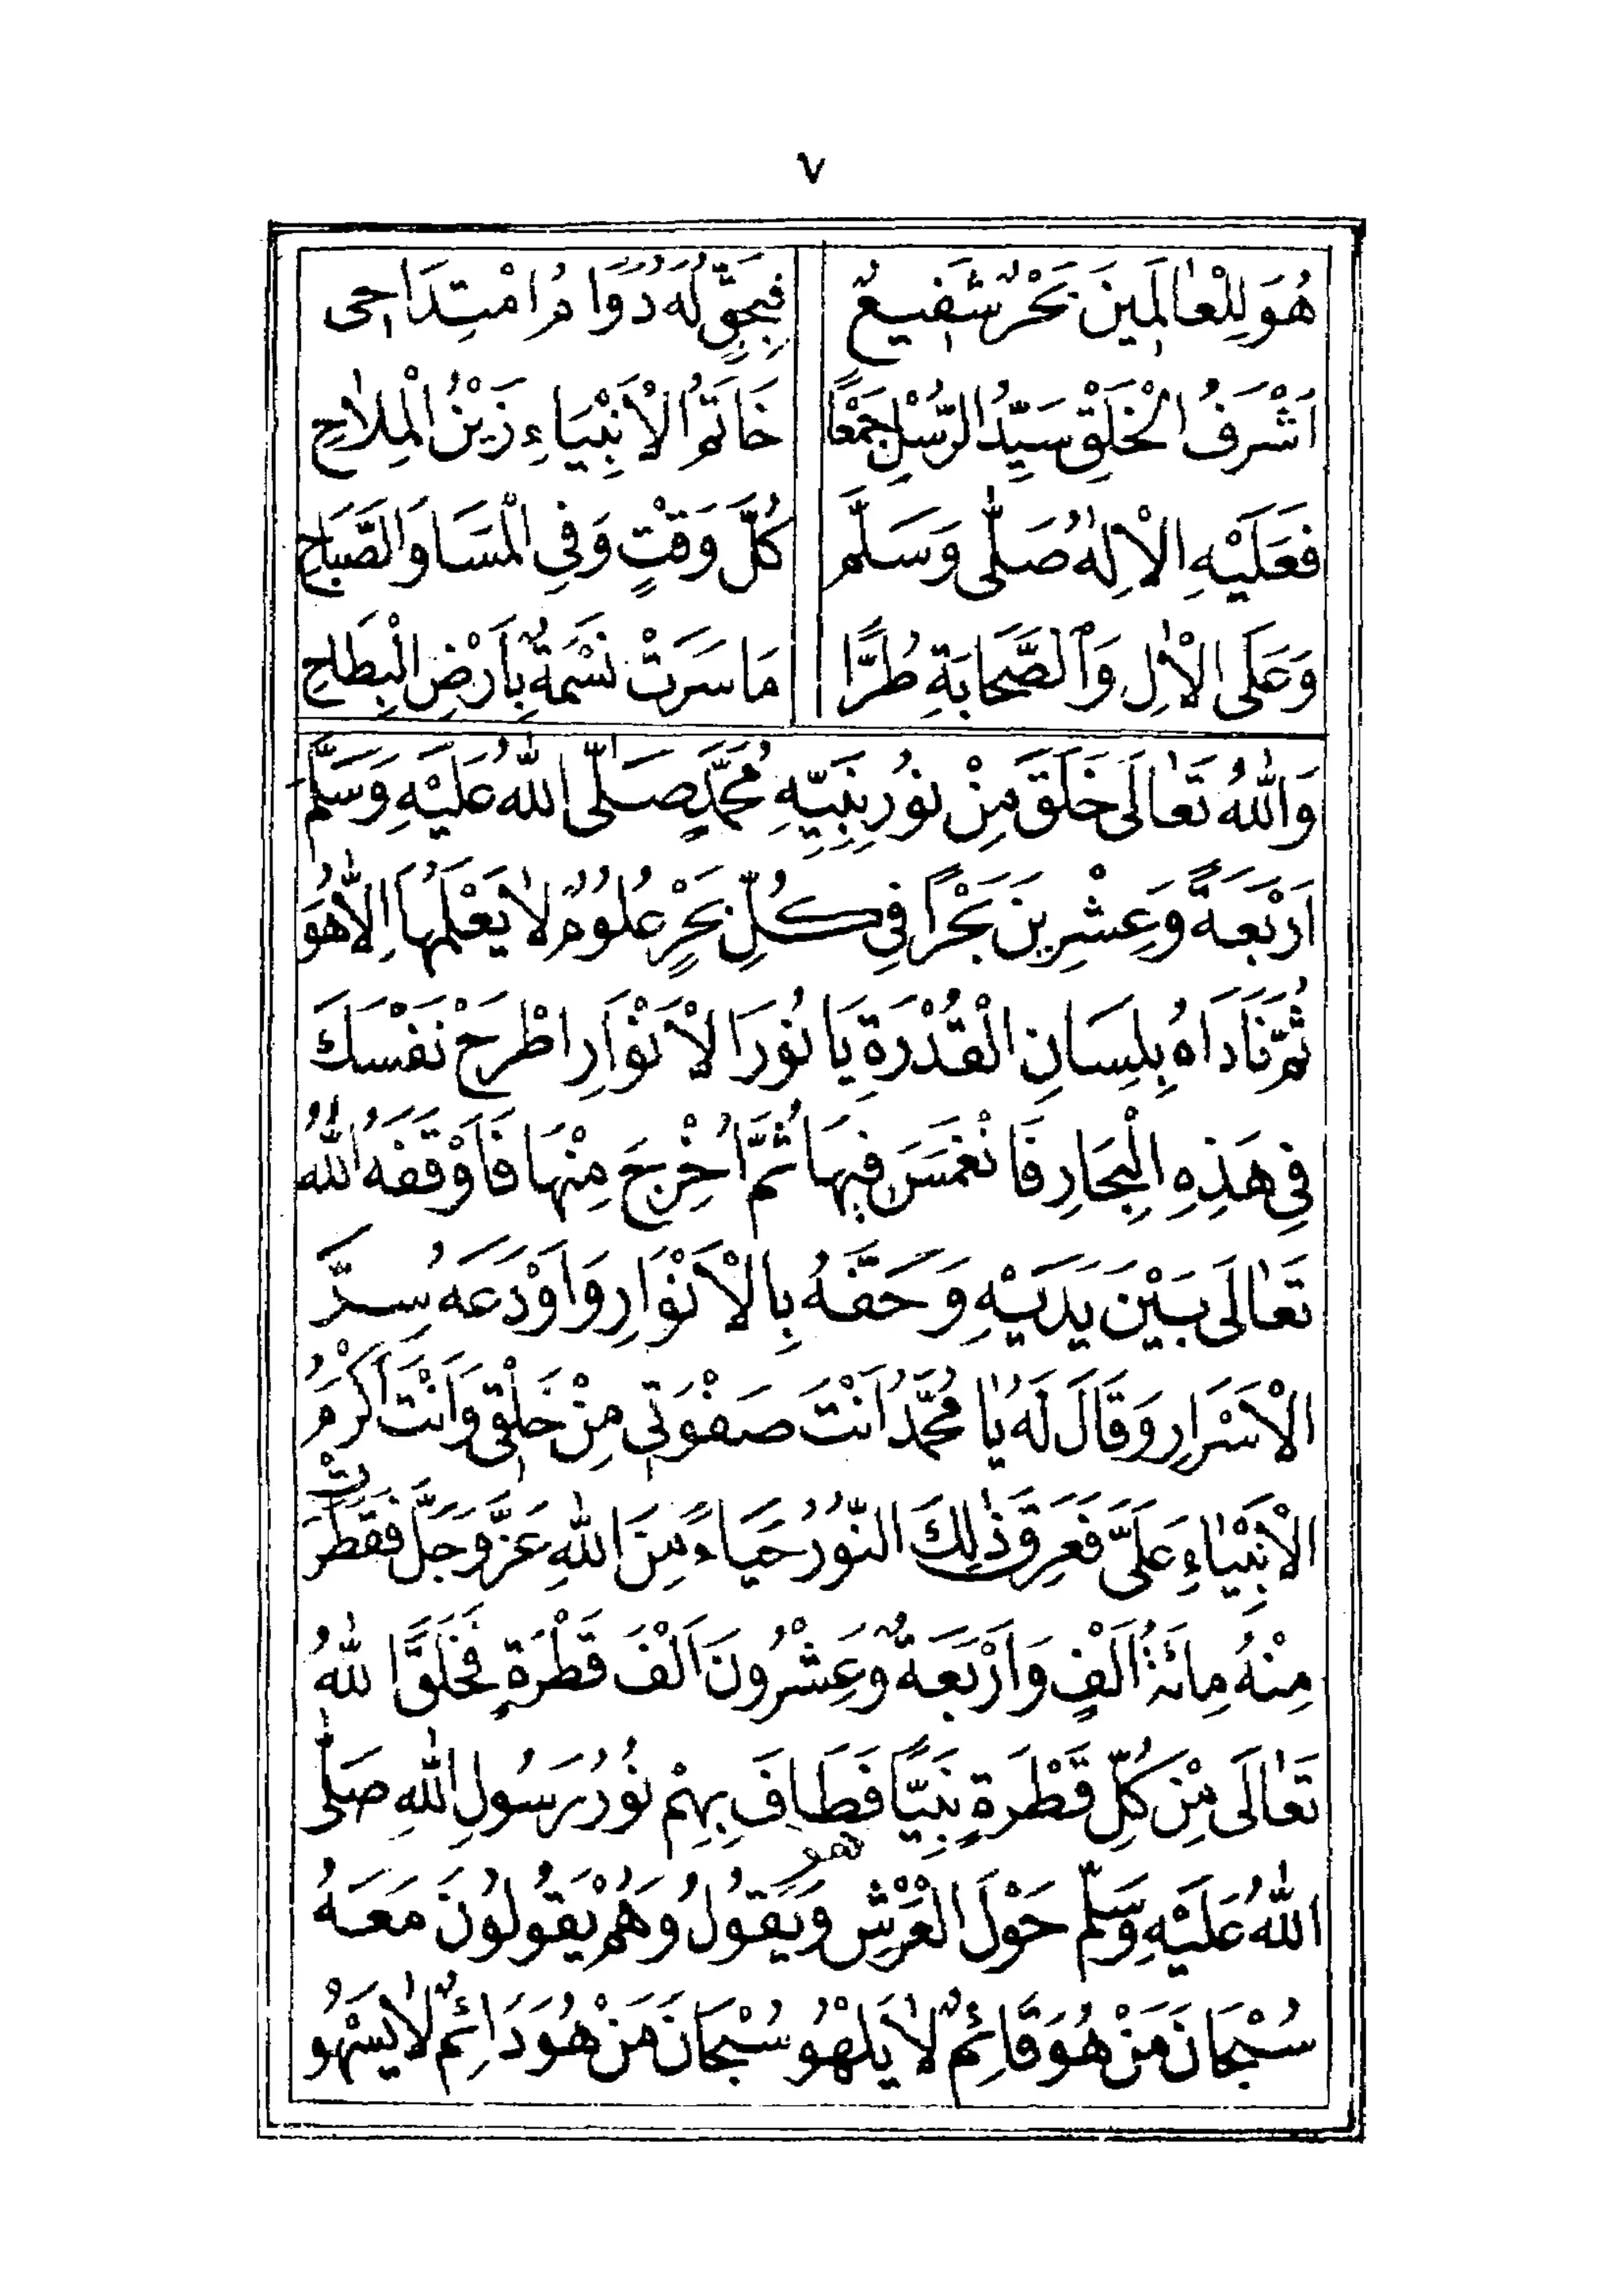 ٧
هُوَ لِلْعٰالَمِينَ بَحْرٌ شَفِيعٌ فَبِحَقٍّ لَهُ دَوَامُ امْتِدَاحِى
اَشْرَفُ الْخَلْقِ سَيِّدُ الرُّسْلِ جَمْعًا خَاتَمُ الْاَنْبِيَاءِ زَيْنُ الْمِلاٰحِ
فَعَلَيْهِ الْاِلٰهُ صَلّٰى وَسَلَّمَ كُلَّ وَقْتٍ وَفِى الْمَسَا وَالصَّبَاحِ
وَعَلَى الْاٰلِ وَالصَّحَابَةِ طُرًّا مَا سَرَتْ نَسْمَةٌ بِاَرْضِ الْبِطَاحِ
وَاللّٰهُ تَعٰالَى خَلَقَ مِنْ نُورِ نَبِيِّهِ مُحَمَّدٍ صَلَّى اللّٰهُ عَلَيْهِ وَسَلَّمَ
اَرْبَعَةً وَعِشْرِينَ بَحْرًا فِى كُلِّ بَحْرٍ عُلُومٌ لاٰ يَعْلَمُهَا اِلاَّ هُوَ
ثُمَّ نَادَاهُ بِلِسَانِ الْقُدْرَةِ يَا نُورَ الْاَنْوَارِ اطْرَحْ نَفْسَكَ
فِى هَذِهِ الْبِحَارِ فَانْغَمَسَ فِيهَا ثُمَّ اُخْرِجَ مِنْهَا فَاَوْقَفَهُ اللّٰهُ
تَعٰالَى بَيْنَ يَدَيْهِ وَحَفَّهُ بِالْاَنْوَارِ وَاَوْدَعَهُ سِرَّ
الْاَسْرَارِ وَقَالَ لَهُ يَا مُحَمَّدُ اَنْتَ صَفْوَتِى مِنْ خَلْقِى وَاَنْتَ اَكْرَمُ
الْاَنْبِيٰاءِ عَلَىَّ فَعَرِقَ ذٰلِكَ النُّورُ حَيَاءً مِنَ اللّٰهِ عَزَّ وَجَلَّ فَقَطَرَتْ
مِنْهُ مِائَةُ اَلْفٍ وَاَرْبَعَةٌ وَعِشْرُونَ اَلْفَ قَطْرَةٍ فَخَلَقَ اللّٰهُ
تَعٰالَى مِنْ كُلِّ قَطْرَةٍ نَبِيًّا فَطَافَ بِهِمْ نُورُ رَسُولِ اللّٰهِ صَلَّى
اللّٰهُ عَلَيْهِ وَسَلَّمَ حَوْلَ الْعَرْشِ وَيَقُولُ هو وَهُمْ يَقُولُونَ مَعَهُ
سُبْحَانَ مَنْ هُوَ قَائِمٌ لاٰ يَلْهُو سُبْحَانَ مَنْ هُوَ دَائِمٌ لاٰ يَسْهُو